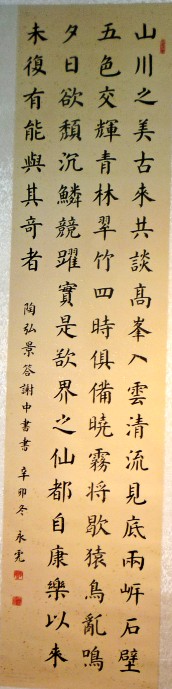 山川之美古來共談高峯入雲清流見底兩岸石壁
五色交輝青林翠竹四時俱備曉霧將歇猿鳥亂鳴
夕日欲頹沉鱗競躍實是欲界之仙都自康樂以來
未復有能與其奇者 陶弘景答謝中書書 辛卯冬 永